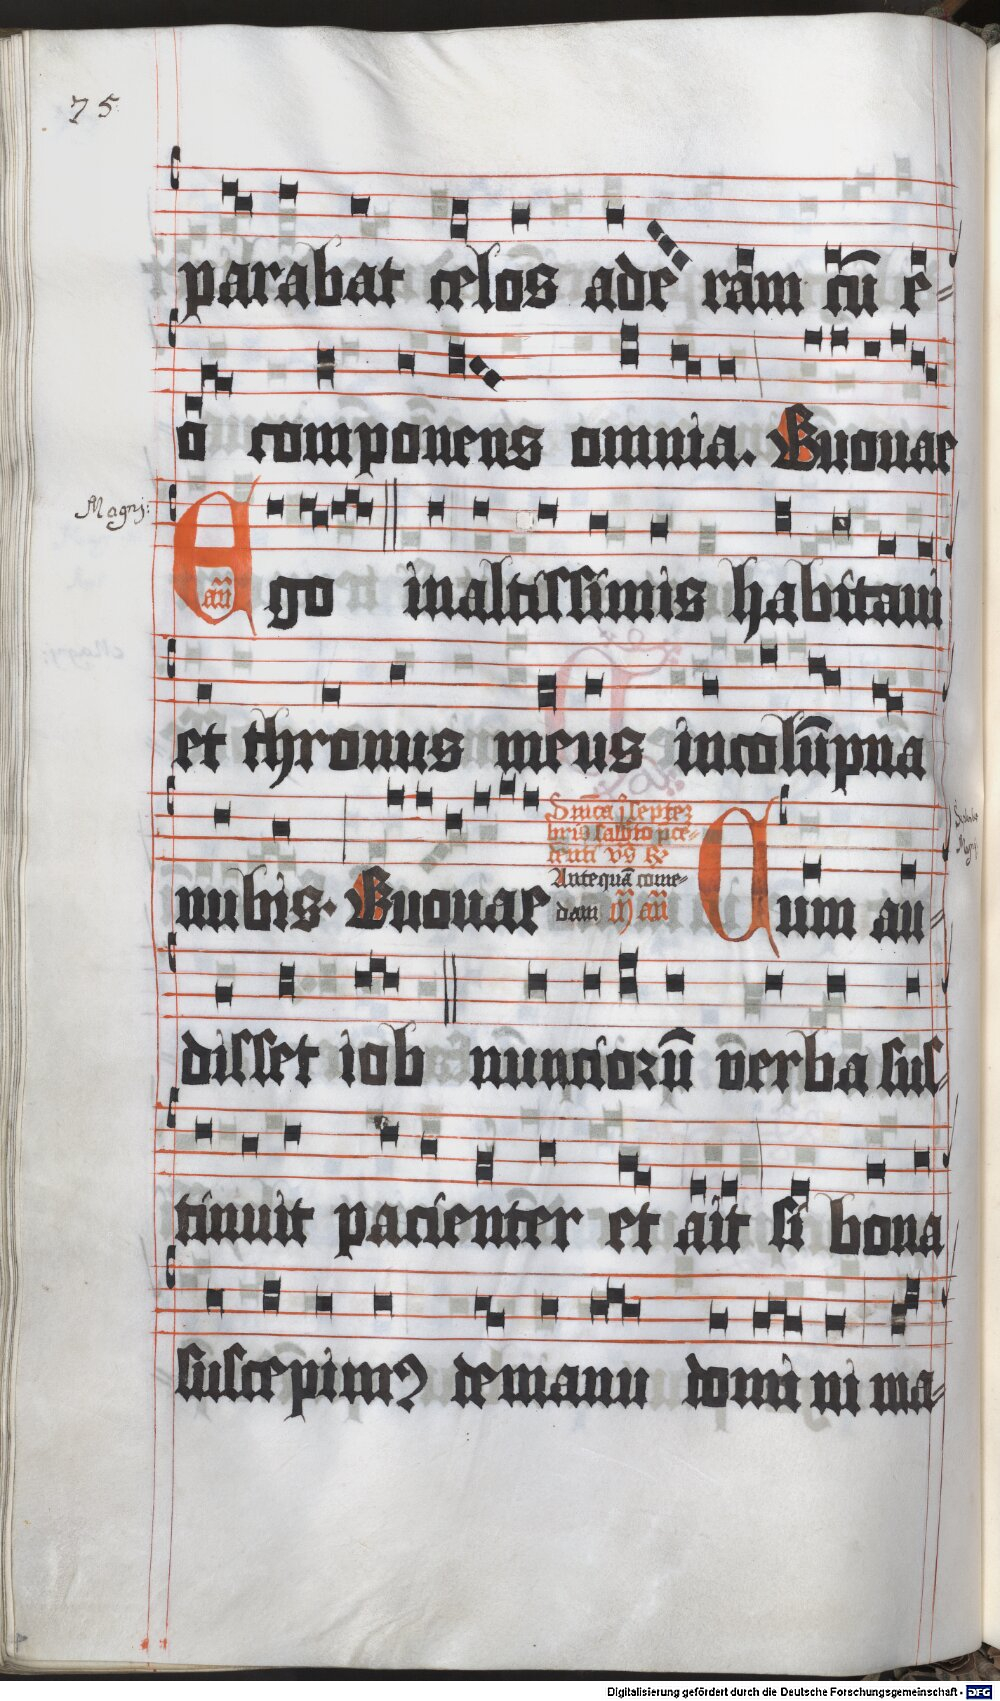 75
parabat celos aderam cū e=
o componens omnia. Euouae
Magnj:
Ego inaltissimis habitaui
añ
et thronus meus incolūpna
nubis. Euouae
Dn̄ica j septē
bris sabbto p̄ce=
denti vs ℟
Antequā come=
dam m̄ añ
Cum au=
disset iob nunciorū verba sus=
tinuit pacienter et ait si bona
suscepimꝰ demanu domini ma=
Digitalisierung gefördert durch die Deutsche Forschungsgemeinschaft - DFG